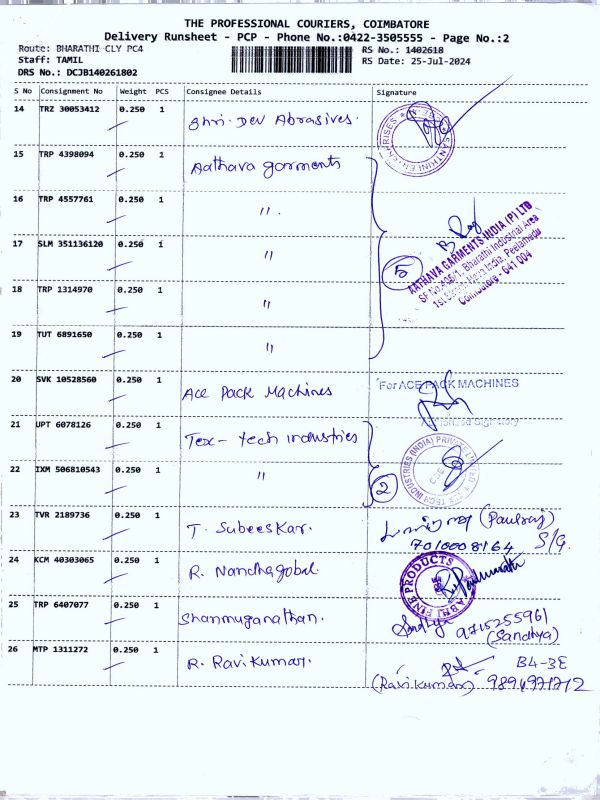 THE PROFESSIONAL COURIERS, COIMBATORE
Delivery Runsheet - PCP - Phone No.:0422-3505555 - Page No.:2
Route: BHARATHI CLY PC4
RS No.: 1402618
Staff: TAMIL
RS Date: 25-Jul-2024
DRS No.: DCJB140261802
S No Consignment No Weight PCS Consignee Details Signature
14 TRZ 30053412 0.250 1 Shri. Dev Abrasives.
15 TRP 4398094 0.250 1 Aathava garments
16 TRP 4557761 0.250 1 〃.
17 SLM 351136120 0.250 1 〃
5
B. Raj
AATHAVA GARMENTS INDIA (P) LTD
SF No.405/1, Bharathi Industrial Area
Peelamedu
Coimbatore - 641 004
18 TRP 1314970 0.250 1 〃
19 TUT 6891650 0.250 1 〃
20 SVK 10528560 0.250 1 Ace Pack Machines
For ACE PACK MACHINES
Authorized Signatory
21 UPT 6078126 0.250 1 Tex-tech industries
22 IXM 506810543 0.250 1 〃
2
23 TVR 2189736 0.250 1 T. Subeeskar.
(Paulraj)
7010008164 S/G.
24 KCM 40303065 0.250 1 R. Nandhagobal.
ABHJ FINE PRODUCTS
25 TRP 6407077 0.250 1 Shanmuganathan.
Sandhya 9715255961
(Sandhya)
26 MTP 1311272 0.250 1 R. Ravikumar.
B4-3E
(Ravikumar) 9894971712